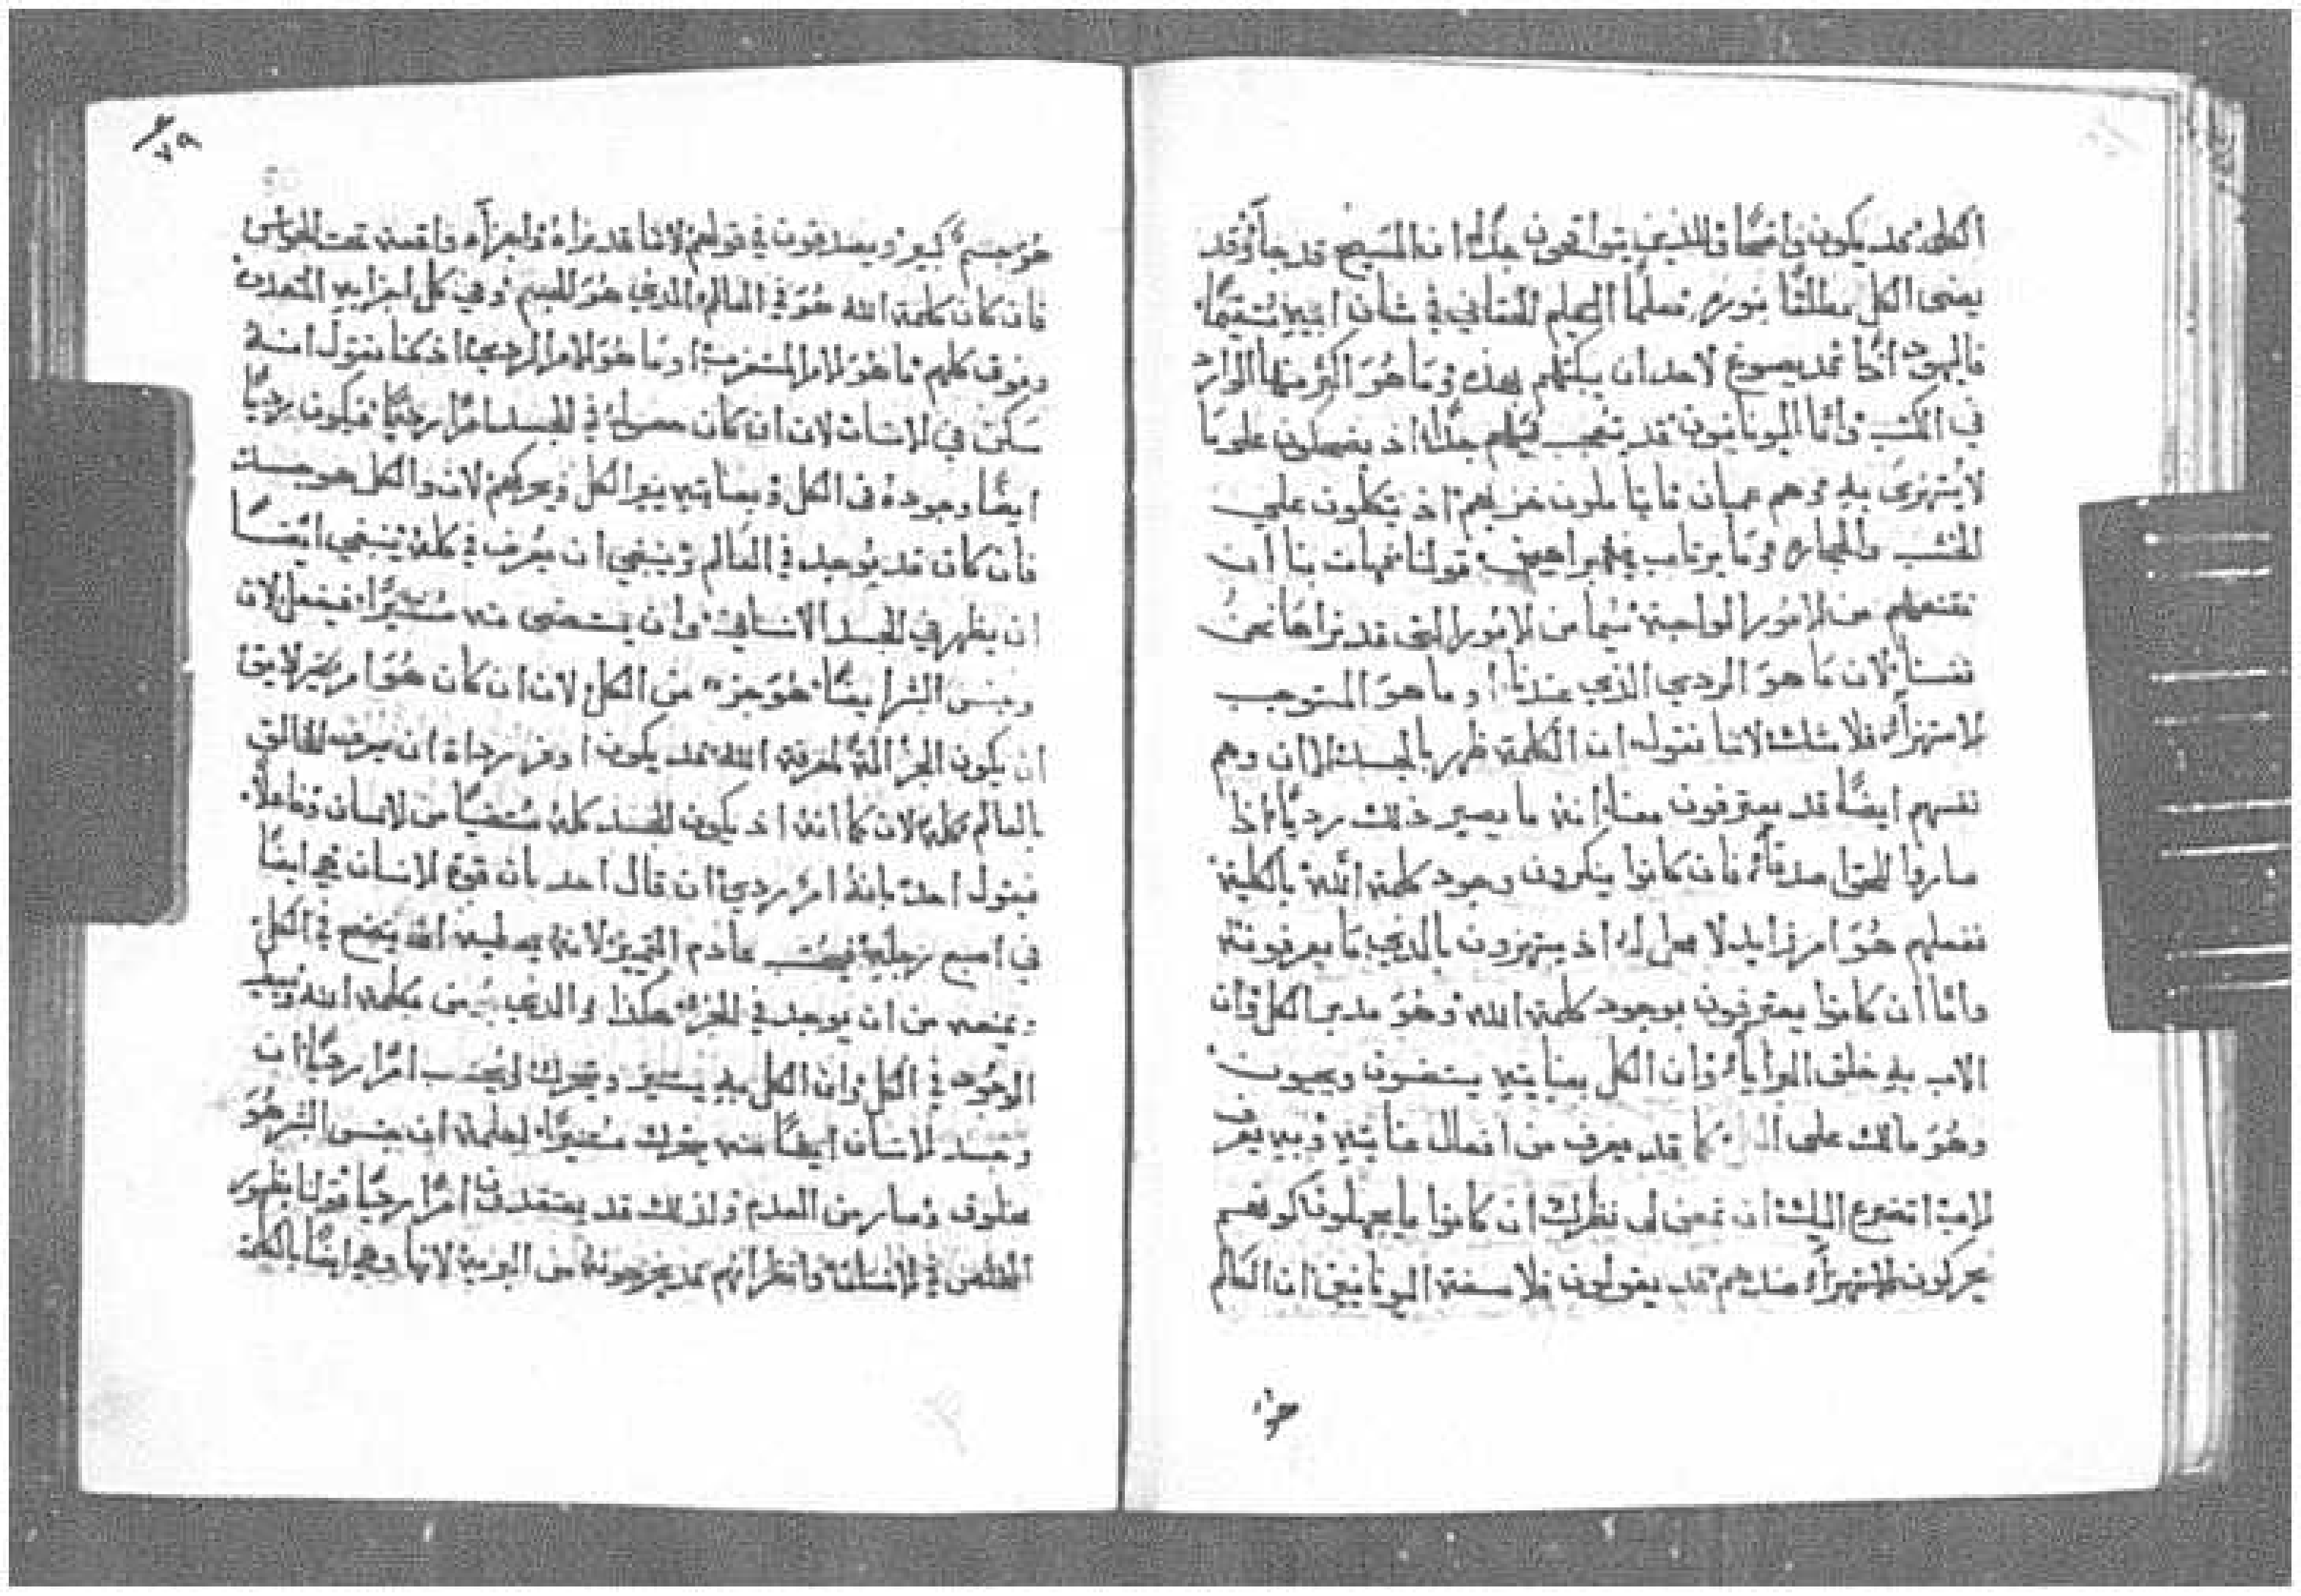 الكلي قد يكون واضحًا فالذين يتواقحون جدًا ان المسيح قد جآ وقد
يضى الكل مطلقًا بنوره معلمًا التعليم الحقاني في شان ابيه مستقيمًا
فاليهود اذًا قد يسوغ لاحد ان يبكتهم بهذه وما هو اكثر منها الوارد
في الكتب واما اليونانيون قد نتعجب منهم جدًا اذ يضحكون على ما
لا يُستهزى به وهم عميان فايتاملون خزيهم اذ يتكلون علي
الخشب والحجاره وما يرتاب في براهين قولنا فهات بنا ان
نقنعهم من الامور الواجبة سيما من الامور التي قد نراها نحن
نفسنا لان ما هو الردي الذي عندنا او ما هو المستوجب
الاستهزآ فلا شك لاننا نقول ان الكلمة ظهر بالجسد الا ان وهم
نفسهم ايضًا قد يعترفون معنا انه ما يصير ذلك رديًا اذا
صاروا للحق اصدقآ فان كانوا ينكرون وجود كلمة الله بالكلية
ففعلهم هو امر زايد لا محل له اذ يستهزون بالذي ما يعرفونه
واما ان كانوا يعترفون بوجود كلمة الله وهو مدبر الكل وان
الاب به خلق البرايا وان الكل بعنايته يستضون ويحيون
وهو مالك على كما قد يعرف من افعال عنايته وبه يعرف
الاب اتضرع اليك ان تمعن لي نظرك ان كانوا ما يجهلون كونهم
يحركون الاستهزآ ضدهم قد يقولون فلاسفة اليونانيين ان العالم
هو جسم كبير ويصدقون في قولهم لاننا قد نراه واجزآه واقعة تحت الحواس
فان كان كلمة الله هو في العالم الذي هو الجسم وفي كل اجزايه المتعدده
وفوق كلهم ما هو الامر المستغرب او ما هو الامر الردي اذ كنا نقول انه
سكن في الانسان لان ان كان حصوله في الجسد امرًا رديًا فيكون رديًا
ايضًا وجوده في الكل وبعنايته ينير الكل ويحركهم لان والكل هو جسد
فان كان قد يوجد في العالم وينبغي ان يعرف في كله ينبغي ايضًا
ان يظهر في الجسد الانساني وان يستضى منه مستنيرًا فيفعل لان
وجنس البشر ايضًا هو جزء من الكل لان ان كان هو امر غير لايق
ان يكون الجزء الة لمعرفة الله قد يكون اوفر رداة ان يعرف الخالق
بالعالم كله لان كما انه اذ يكون الجسد كله مستضيًا من الانسان وفاعلًا
فيقول احد بانه امر ردي ان قال احد بان قوة الانسان هي ايضًا
في اصبع رجليه فيحسب عادم التمييز لانه يعطيه انه يتضع في الكل
ويمنعه من ان يوجد في الجزء هكذا والذي يومن بكلمة الله
الوجود في الكل وان الكل به يستنير ويتحرك لا يحسب امرًا رديًا ان
وجسد الانسان ايضًا منه يتحرك مستنيرًا لعلمه ان جنس البشر هو
مخلوق وصار من العدم ولذلك قد يعتقدون امرًا رديًا قولنا بظهور
المخلص في الانسان وانظر انهم قد يخرجونه من البرية لانها وهي ايضًا بالكلمة